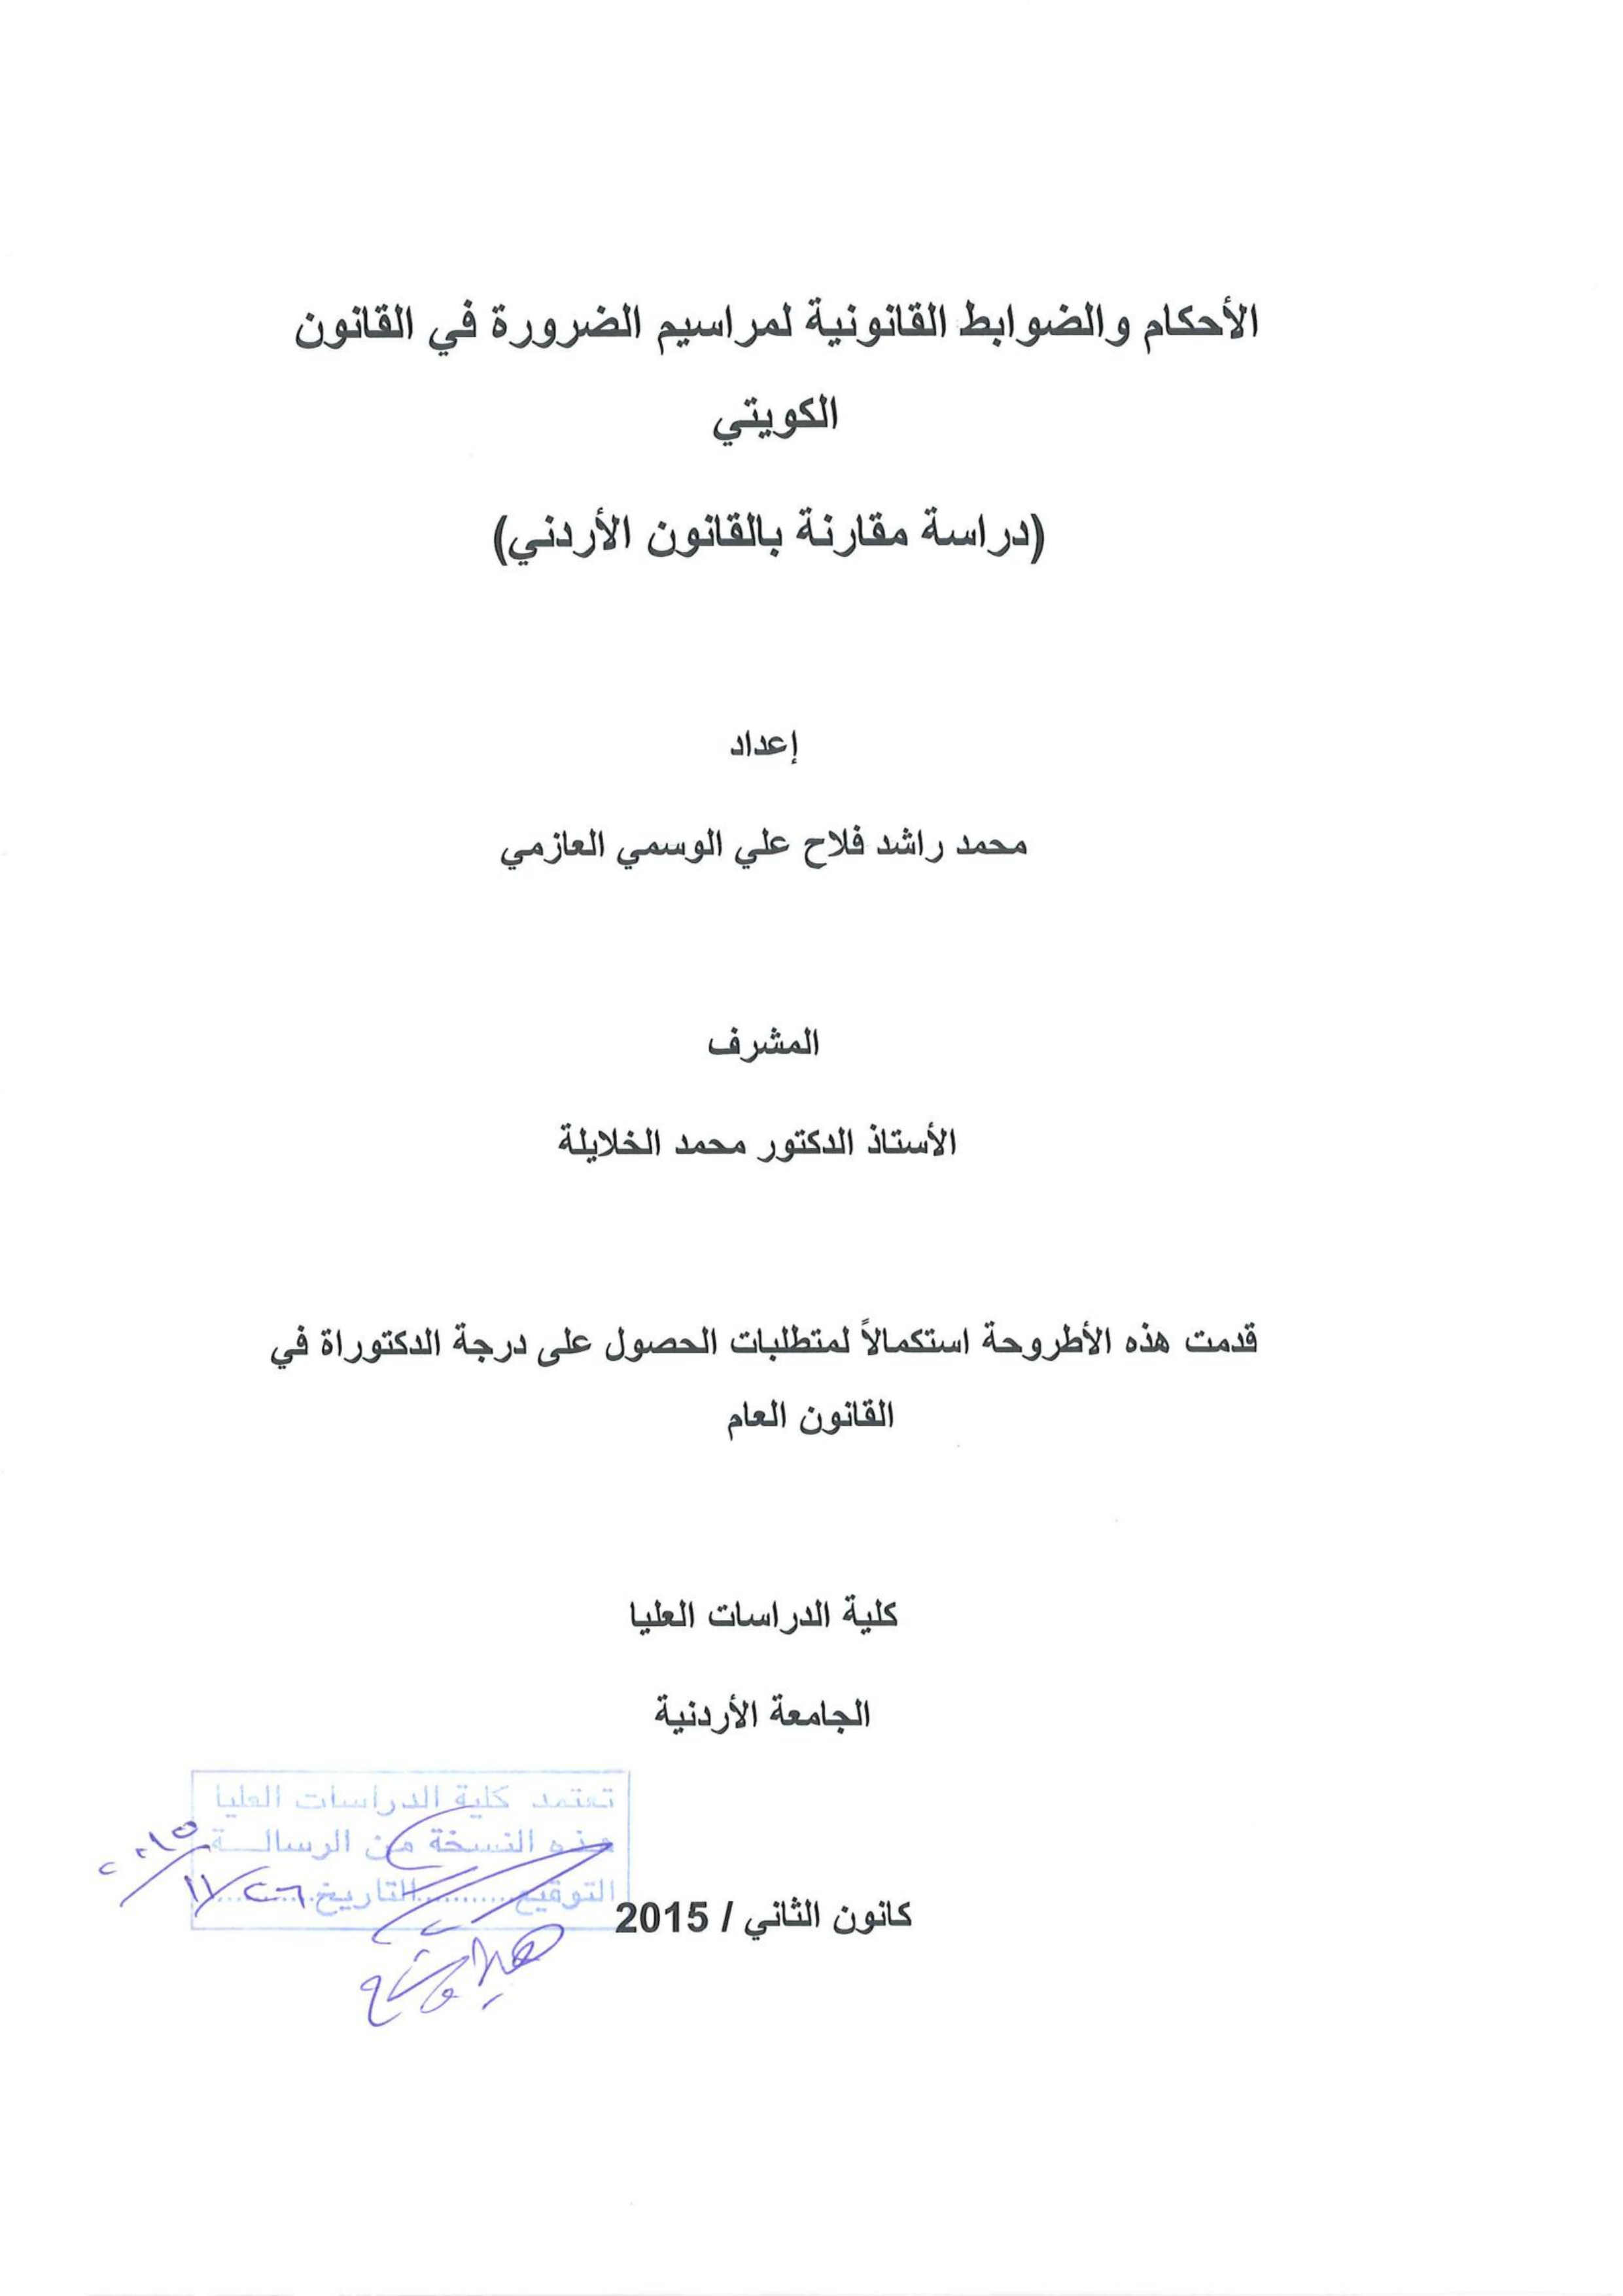 الأحكام والضوابط القانونية لمراسيم الضرورة في القانون
الكويتي
(دراسة مقارنة بالقانون الأردني)
إعداد
محمد راشد فلاح علي الوسمي العازمي
المشرف
الأستاذ الدكتور محمد الخلايلة
قدمت هذه الأطروحة استكمالاً لمتطلبات الحصول على درجة الدكتوراة في
القانون العام
كلية الدراسات العليا
الجامعة الأردنية
تعتمد كلية الدراسات العليا
هذه النسخة من الرسالـــة
التوقيع............التاريخ............
كانون الثاني / 2015